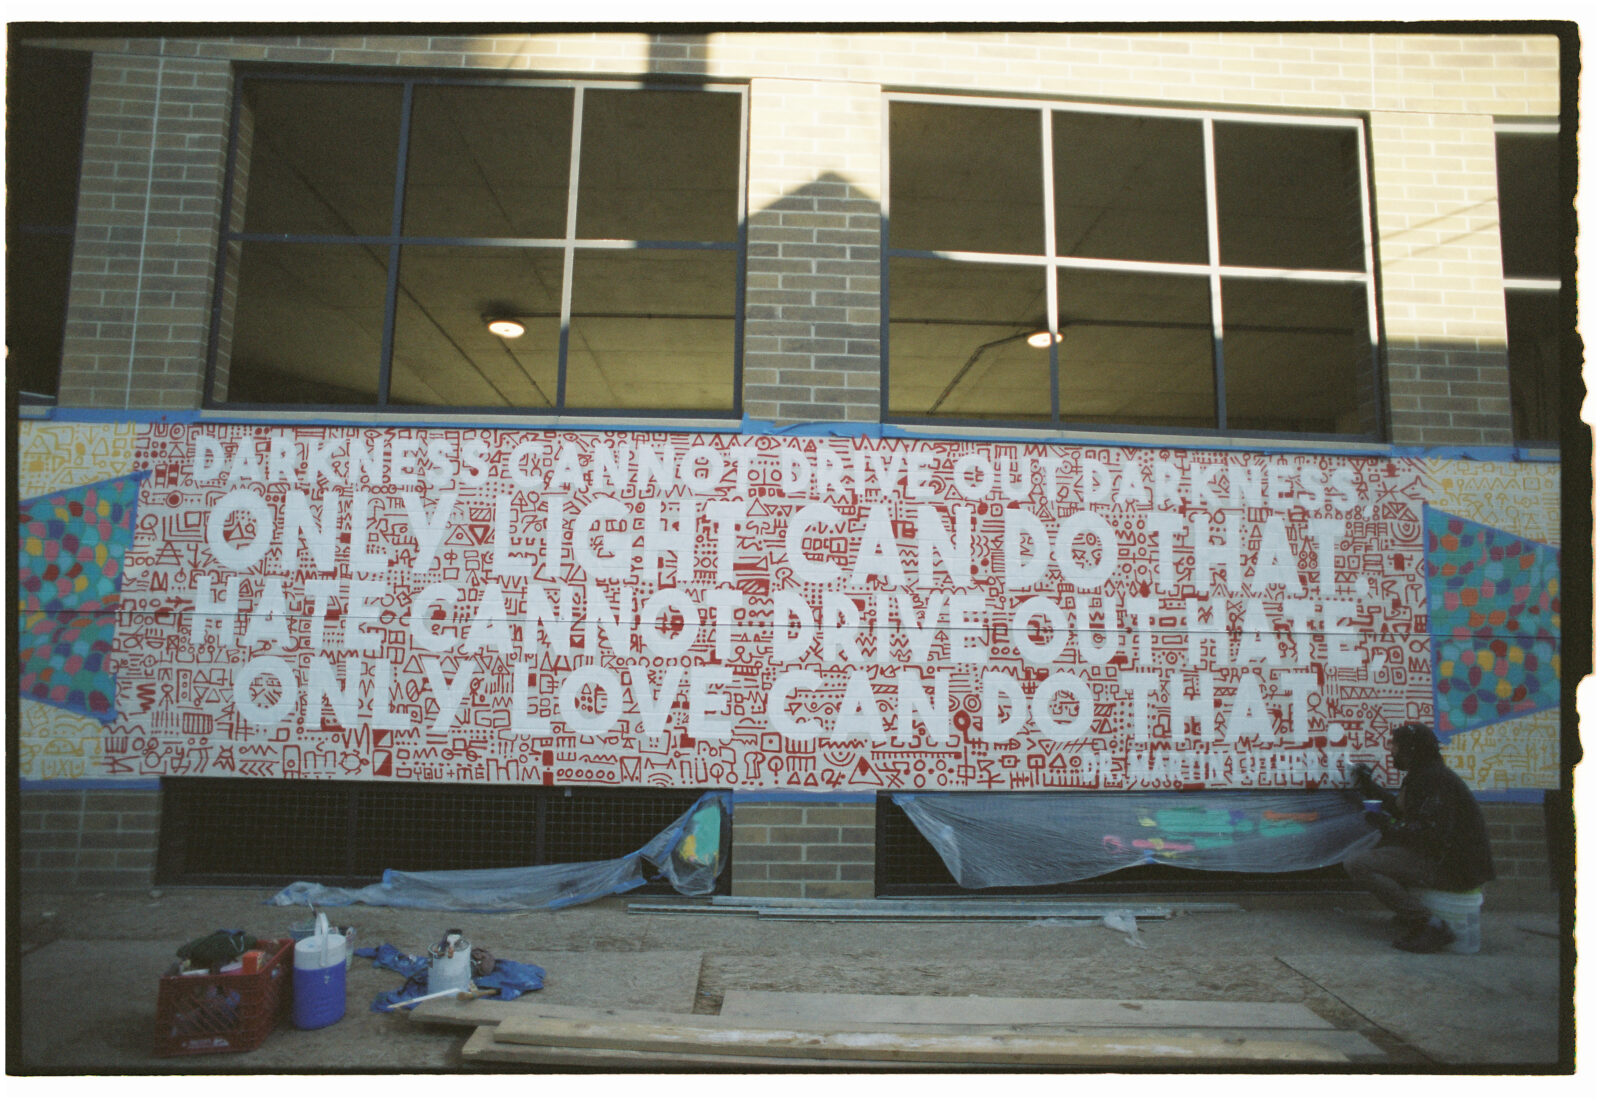 DARKNESS CANNOT DRIVE OUT DARKNESS,
ONLY LIGHT CAN DO THAT.
HATE CANNOT DRIVE OUT HATE,
ONLY LOVE CAN DO THAT.
DR. MARTIN LUTHER K
YOU+ME